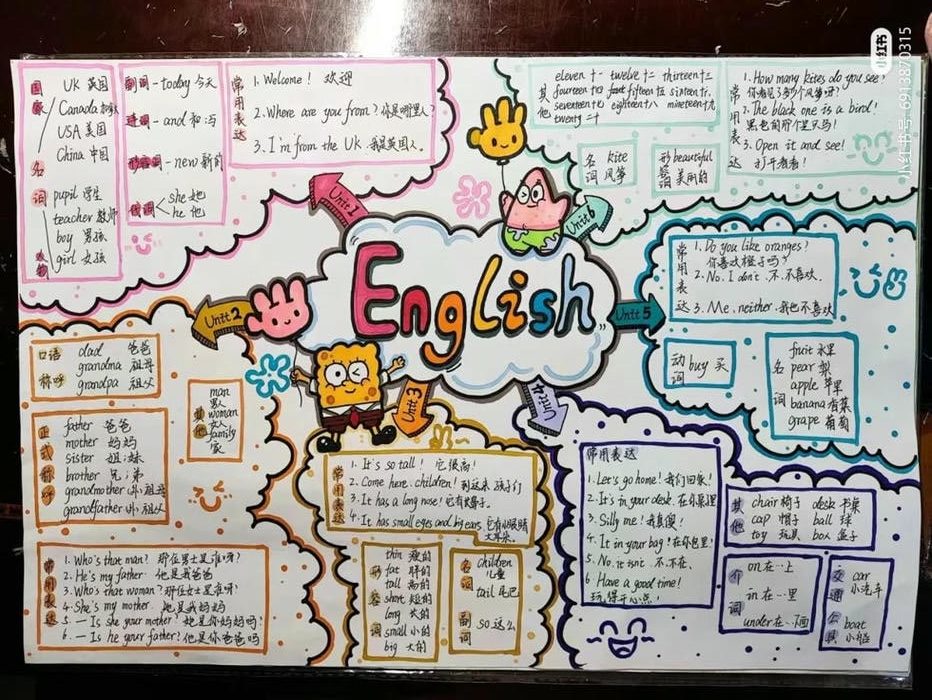 English
Unit 1
国家
UK 英国
Canada 加拿大
USA 美国
China 中国
名词
pupil 学生
teacher 教师
boy 男孩
girl 女孩
副词-today 今天
连词-and 和;与
形容词-new 新的
代词
she 她
he 他
常用表达
1. Welcome! 欢迎
2. Where are you from? 你是哪里人?
3. I'm from the UK. 我是英国人。
Unit 6
其他
eleven 十一 twelve 十二 thirteen 十三
seventeen 十七 eighteen 十八 nineteen 十九
twenty 二十
名词
kite
风筝
形容词
beautiful
美丽的
常用表达
1. How many kites do you see?
你看见了多少个风筝呀?
2. The black one is a bird!
黑色的那个是只鸟!
3. Open it and see!
打开看看!
Unit 5
常用表达
1. Do you like oranges?
你喜欢橙子吗?
2. No. I don't. 不.不喜欢.
3. Me, neither. 我也不喜欢
动词
buy 买
名词
fruit 水果
pear 梨
apple 苹果
banana 香蕉
grape 葡萄
Unit 2
口语称呼
dad 爸爸
grandma 祖母
grandpa 祖父
正式称呼
father 爸爸
mother 妈妈
sister 姐;妹
brother 兄;弟
grandmother 外;祖母
grandfather 外;祖父
其他
man
男人
woman
女人
family
家
常用表达
1. Who's that man? 那位男士是谁呀?
2. He's my father. 他是我爸爸
3. Who's that woman? 那位女士是谁呀?
4. She's my mother. 她是我妈妈
5. — Is she your mother? 她是你妈妈吗?
6. — Is he your father? 他是你爸爸吗
Unit 3
常用表达
1. It's so tall! 它很高!
2. Come here, children! 到这来 孩子们
3. It has a long nose! 它有长鼻子.
4. It has small eyes and big ears. 它有小眼睛大耳朵.
形容词
thin 瘦的
fat 胖的
tall 高的
short 短的
long 长的
small 小的
big 大的
名词
children
儿童
tail 尾巴
副词
so 这么
Unit 4
常用表达
1. Let's go home! 我们回家!
2. It's in your desk. 在你桌里
3. Silly me! 我真傻!
4. It in your bag! 在你包里!
5. No, it isnt 不.不在.
6 Have a good time!
玩得开心点!
其他
chair 椅子 desk 书桌
cap 帽子 ball 球
toy 玩具 box 盒子
介词
on 在…上
in 在…里
under 在…下面
交通工具
car
小汽车
boat
小船
小红书
小红书号: 6913870315